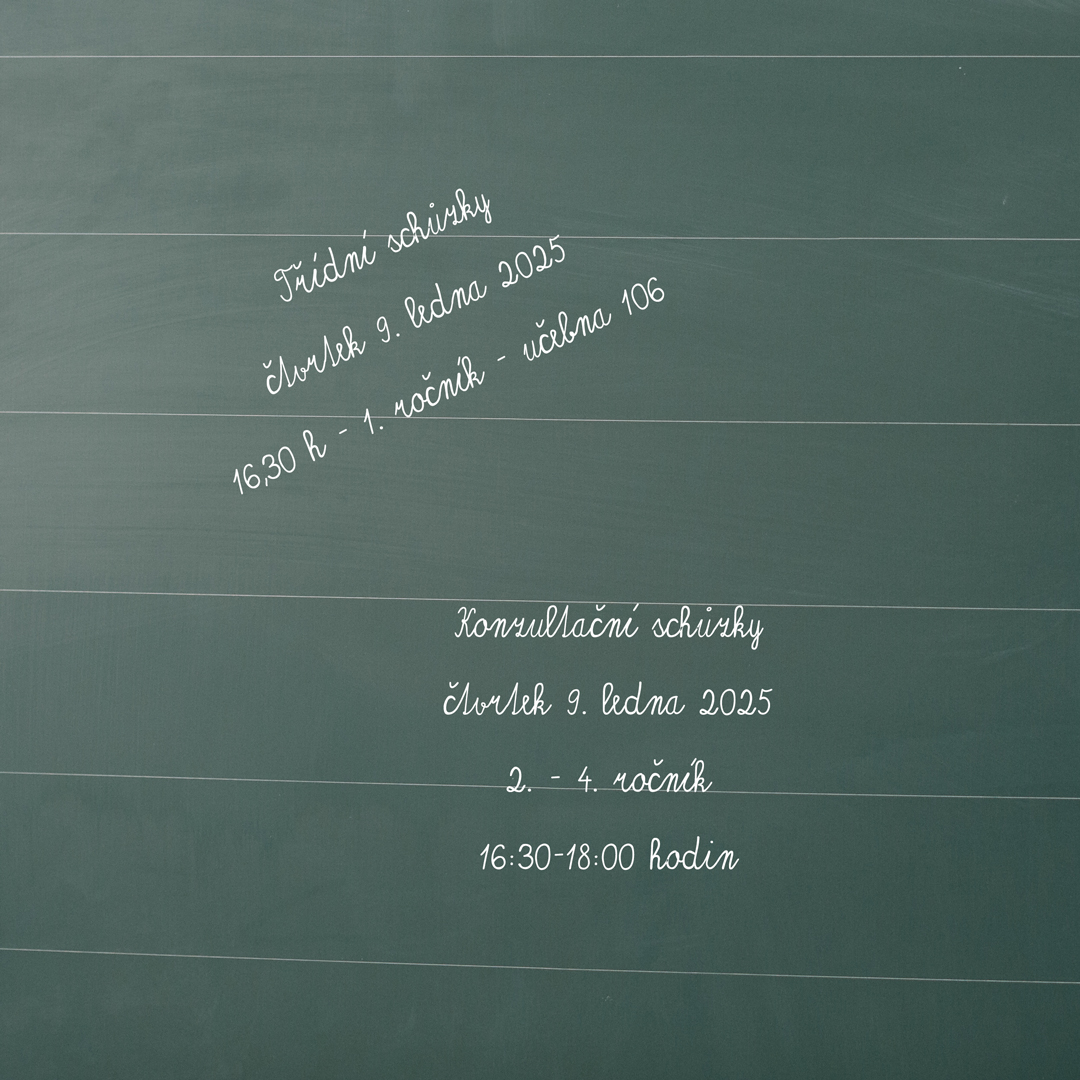 Třídní schůzky
čtvrtek 9. ledna 2025
16,30 h - 1. ročník - učebna 106
Konzultační schůzky
čtvrtek 9. ledna 2025
2. - 4. ročník
16:30-18:00 hodin